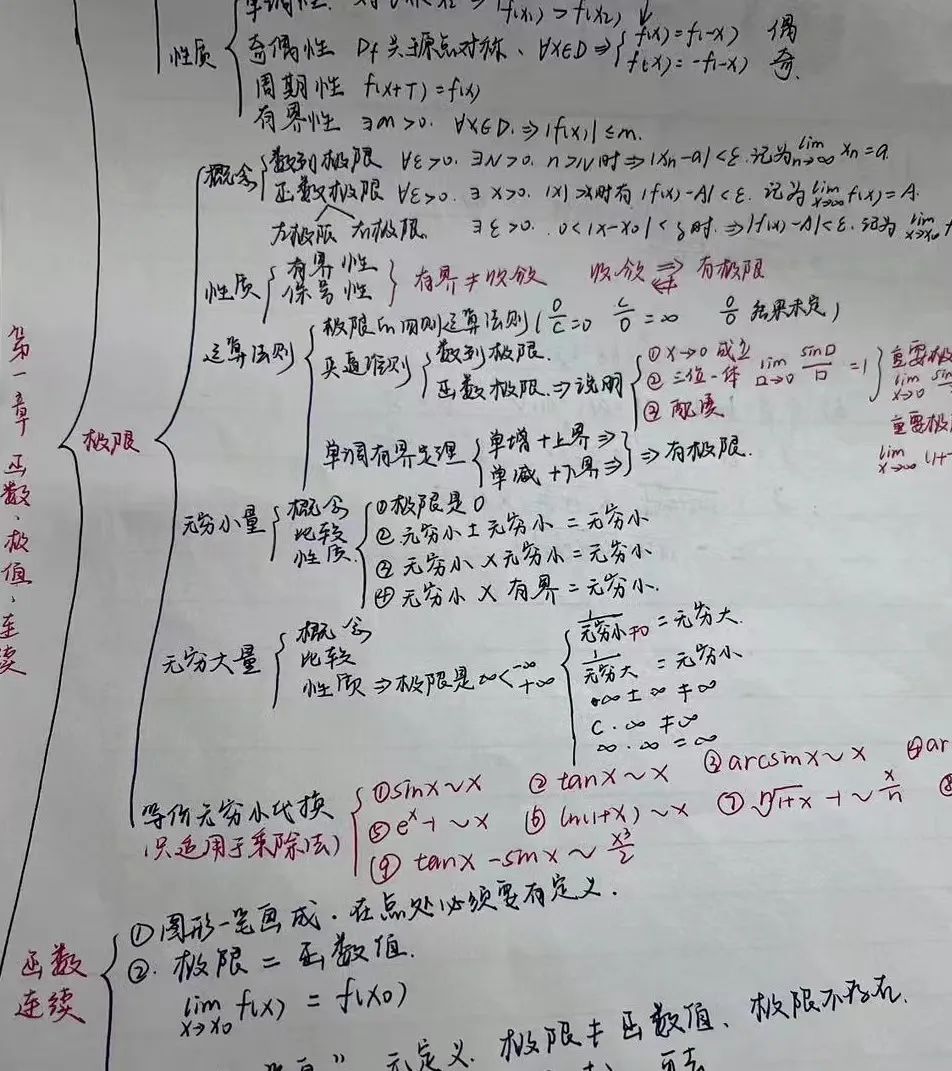 单调性. x₁ x₂ ⇒ f(x₁) > f(x₂)
性质
奇偶性 Df 关于原点对称、∀x∈D ⇒ { f(x) = f(-x) 偶
f(x) = -f(-x) 奇.
周期性 f(x+T) = f(x)
有界性 ∃m>0. ∀x∈D. ⇒ |f(x)| ≤ m.
概念
数列极限 ∀ε>0. ∃N>0. n>N时 ⇒ |xn-a| < ε. 记为 lim n→∞ xn = a.
函数极限 ∀ε>0. ∃x>0. |x|>x时有 |f(x)-A| < ε. 记为 lim x→∞ f(x) = A.
左极限 右极限. ∃ε>0. 0<|x-x0|<δ时. ⇒ |f(x)-A| < ε. 记为 lim x→x0 f
性质
有界性
保号性
有界≠收敛 收敛 ⇒ 有极限
运算法则
极限的四则运算法则 ( 0/C = 0 C/0 = ∞ 0/0 结果未定 )
夹逼准则
数列极限.
函数极限. ⇒ 说明
① x→0 成立
② 三位一体 lim □→0 sin□/□ = 1
③ 配凑
重要极
lim x→0 sin
重要极
lim x→∞ (1+
单调有界定理
单增 + 上界 ⇒
单减 + 下界 ⇒
⇒ 有极限.
第一章 函数、极值、连续
极限
无穷小量
概念
比较
性质.
① 极限是0
② 无穷小 ± 无穷小 = 无穷小
③ 无穷小 × 无穷小 = 无穷小
④ 无穷小 × 有界 = 无穷小.
无穷大量
概念
比较
性质 ⇒ 极限是 ∞ < -∞ +∞
1/无穷小≠0 = 无穷大.
1/无穷大 = 无穷小
∞ ± ∞ ≠ ∞
C · ∞ ≠ ∞
∞ · ∞ = ∞
等价无穷小代换
(只适用于乘除法)
① sinx ~ x ② tanx ~ x ③ arcsinx ~ x ④ ar
⑤ e^x - 1 ~ x ⑥ ln(1+x) ~ x ⑦ ⁿ√(1+x) - 1 ~ x/n ⑧
⑨ tanx - sinx ~ x³/2
函数
连续
① 图形一笔画成. 在点处必须要有定义.
②. 极限 = 函数值.
lim x→x0 f(x) = f(x0)
无定义. 极限≠函数值、极限不存在.